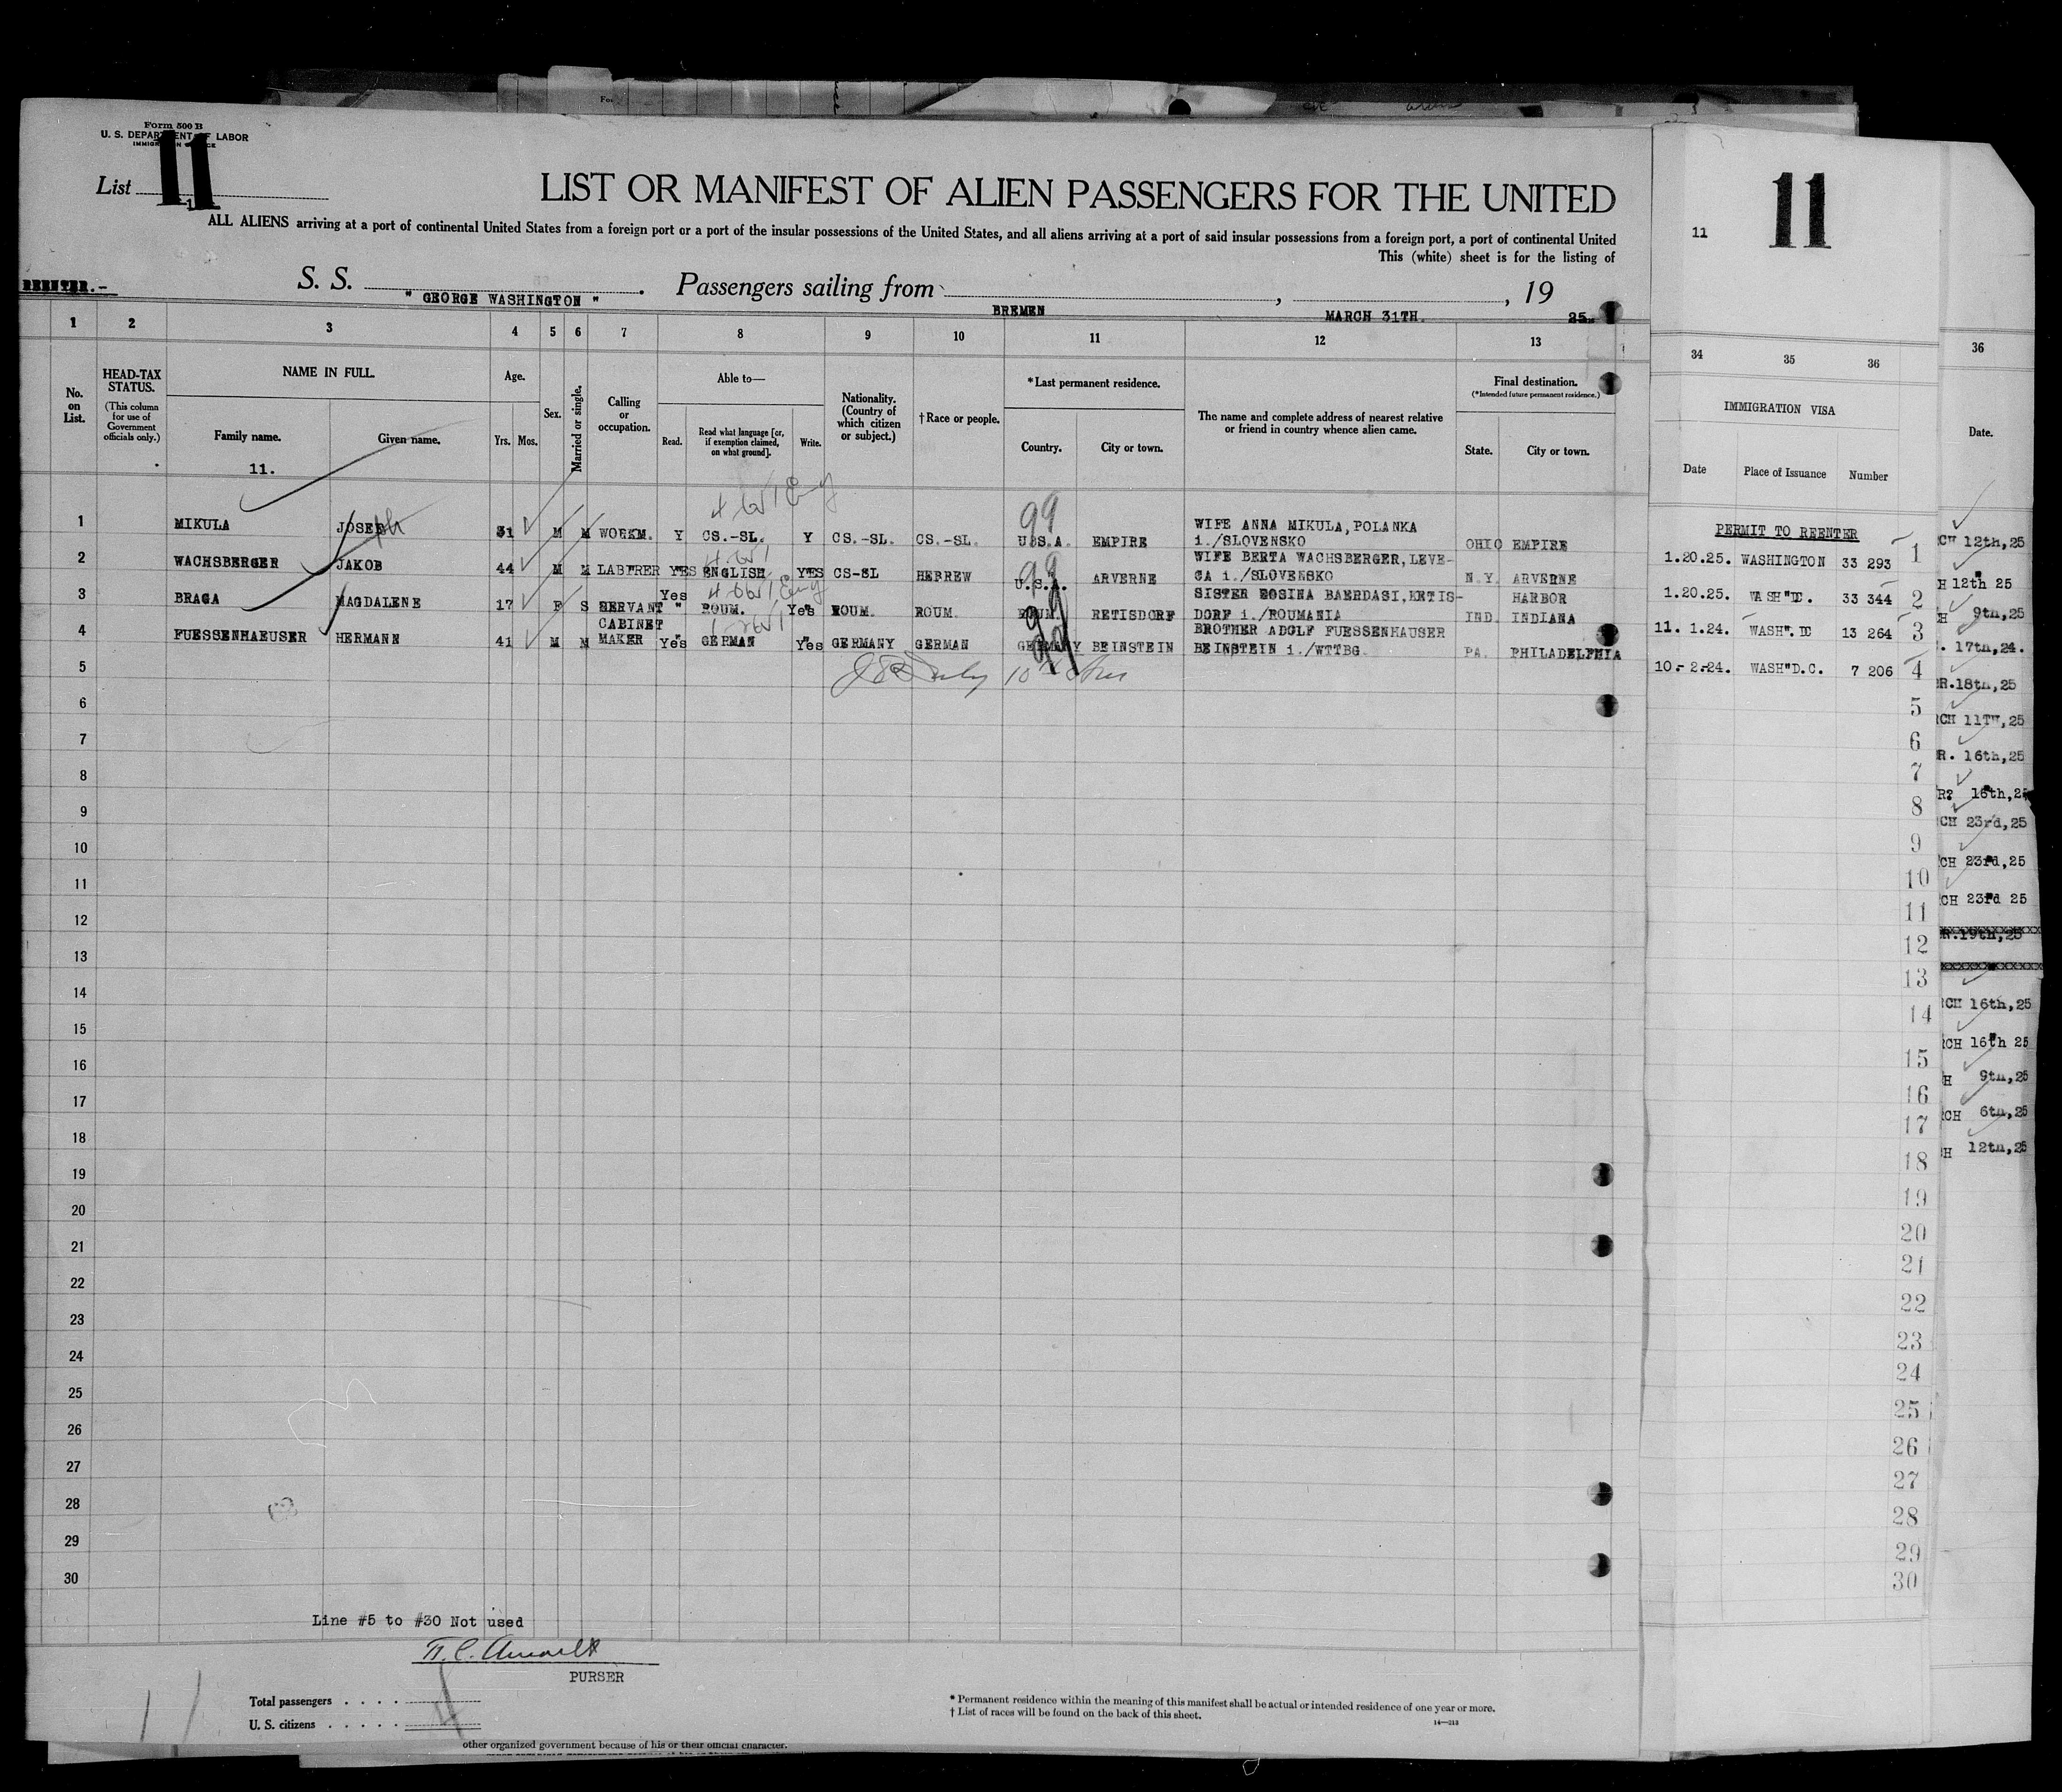 Form 500 B
U. S. DEPARTMENT OF LABOR
List 11
LIST OR MANIFEST OF ALIEN PASSENGERS FOR THE UNITED
ALL ALIENS arriving at a port of continental United States from a foreign port or a port of the insular possessions of the United States, and all aliens arriving at a port of said insular possessions from a foreign port, a port of continental United
This (white) sheet is for the listing of
REENTER.-
S. S. " GEORGE WASHINGTON " . Passengers sailing from BREMEN , MARCH 31TH. , 19 25.
1 2 3 4 5 6 7 8 9 10 11 12 13
No. on List.
HEAD-TAX STATUS.
(This column for use of Government officials only.)
NAME IN FULL.
Family name. Given name.
11.
Age.
Yrs. Mos.
Sex.
Married or single.
Calling or occupation.
Able to—
Read. Read what language [or, if exemption claimed, on what ground]. Write.
Nationality. (Country of which citizen or subject.)
† Race or people.
*Last permanent residence.
Country. City or town.
The name and complete address of nearest relative or friend in country whence alien came.
Final destination.
(*Intended future permanent residence.)
State. City or town.
1 MIKULA JOSEPH 31 M M WORKM. Y CS.-SL. Y CS.-SL. CS.-SL. U.S.A. EMPIRE WIFE ANNA MIKULA, POLANKA i./SLOVENSKO OHIO EMPIRE
2 WACHSBERGER JAKOB 44 M M LABFRER YES ENGLISH YES CS-SL HEBREW U.S.A. ARVERNE WIFE BERTA WACHSBERGER, LEVE-CA i./SLOVENSKO N.Y. ARVERNE
3 BRAGA MAGDALENE 17 F S SERVANT Yes ROUM. Yes ROUM. ROUM. ROUM. RETISDORF SISTER ROSINA BAERDASI, RETIS-DORF i./ROUMANIA IND. HARBOR INDIANA
4 FUESSENHAEUSER HERMANN 41 M M CABINET MAKER Yes GERMAN Yes GERMANY GERMAN GERMANY BEINSTEIN BROTHER ADOLF FUESSENHAUSER BEINSTEIN i./WTTBG. PA. PHILADELPHIA
99
99
5
6
7
8
9
10
11
12
13
14
15
16
17
18
19
20
21
22
23
24
25
26
27
28
29
30
Line #5 to #30 Not used
PURSER
Total passengers . . . .
U. S. citizens . . . . .
4
11
* Permanent residence within the meaning of this manifest shall be actual or intended residence of one year or more.
† List of races will be found on the back of this sheet.
14—213
other organized government because of his or their official character.
11
11
34 35 36
IMMIGRATION VISA
Date Place of Issuance Number
PERMIT TO REENTER
1.20.25. WASHINGTON 33 293 1
1.20.25. WASH"DC. 33 344 2
11. 1.24. WASH". DC 13 264 3
10.-2.-24. WASH"D.C. 7 206 4
5
6
7
8
9
10
11
12
13
14
15
16
17
18
19
20
21
22
23
24
25
26
27
28
29
30
36
Date.
CH 12th,25
H 12th 25
H 9th,25
. 17th,24.
R.18th,25
RCH 11TH,25
R. 16th,25
R? 16th,25
CH 23rd,25
CH 23rd,25
CH 23rd 25
R.19th,25
RCH 16th,25
RCH 16th 25
H 9th,25
RCH 6th,25
H 12th,25